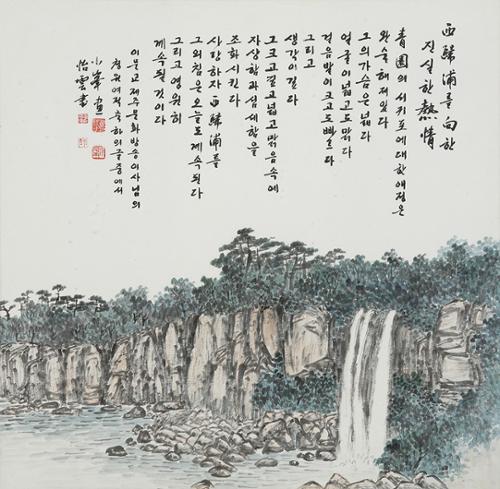 西歸浦를 向한
진실한 熱情
靑園의 서귀포에 대한 애정은
완숙해져있다
그의 가슴은 넓다
얼굴이 넓고도 맑다
걸음발이 크고도 빠르다
그리고
생각이 깊다
그 크고 깊고 넓고 맑음 속에
자상함과 섬세함을
조화시킨다
사랑하자 西歸浦를
그 외침은 오늘도 계속된다
그리고 영원히
계속될 것이다
이문교 제주문화방송이사님의
청원예적축하의 글 중에서
小峯 畫
怡雲 書